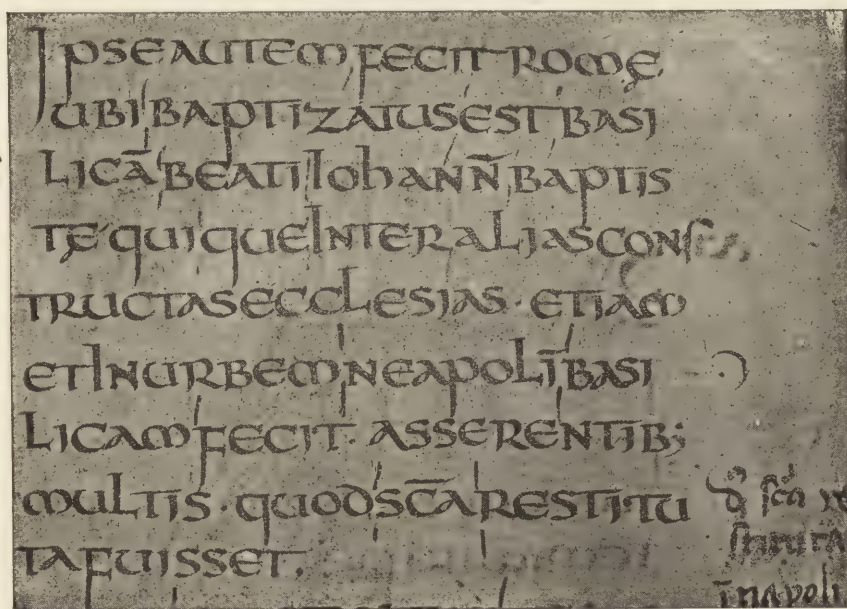 IPSE AUTEM FECIT ROMĘ.
UBI BAPTIZATUS EST BASI
LICĀ BEATI IOHANÑ BAPTIS
TĘ QUIQUE INTER ALIAS CONS
TRUCTAS ECCLESIAS · ETIAM
ET IN URBEM NEAPOLĪ BASI
LICAM FECIT. ASSERENTIB;
MULTIS · QUOD SC̄A RESTITU
TA FUISSET.